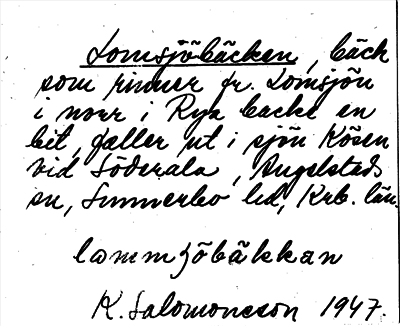 Lomsjöbäcken, bäck
som rinner fr. Lomsjön
i norr i Rya backe en
bit, faller ut i sjön Kösen
vid Söderala, Angelstads
sn, Sunnerbo hd, Krb. län.
lommsjöbäkkan
K. Salomonsson 1947.